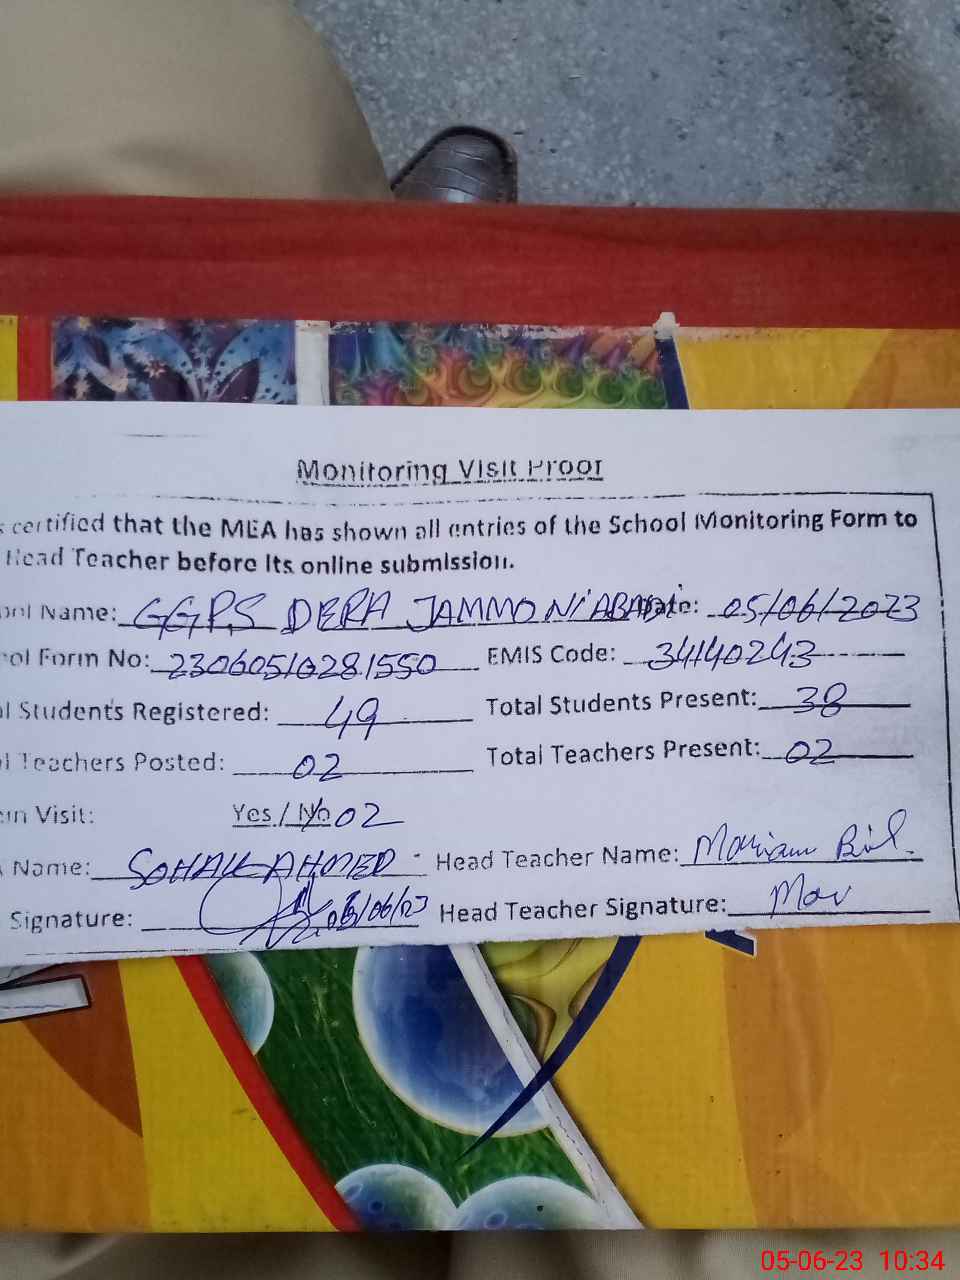 Monitoring Visit Proof
certified that the MEA has shown all entries of the School Monitoring Form to
Head Teacher before its online submission.
Name: GGPS DERA JAMMO NIABADI Date: 05/06/2023
ol Form No: 23060510281550 EMIS Code: 34140243
l Students Registered: 49 Total Students Present: 38
l Teachers Posted: 02 Total Teachers Present: 02
Visit: Yes / No 02
Name: SOHAIL AHMED Head Teacher Name:
Signature: 05/06/23 Head Teacher Signature:
05-06-23 10:34